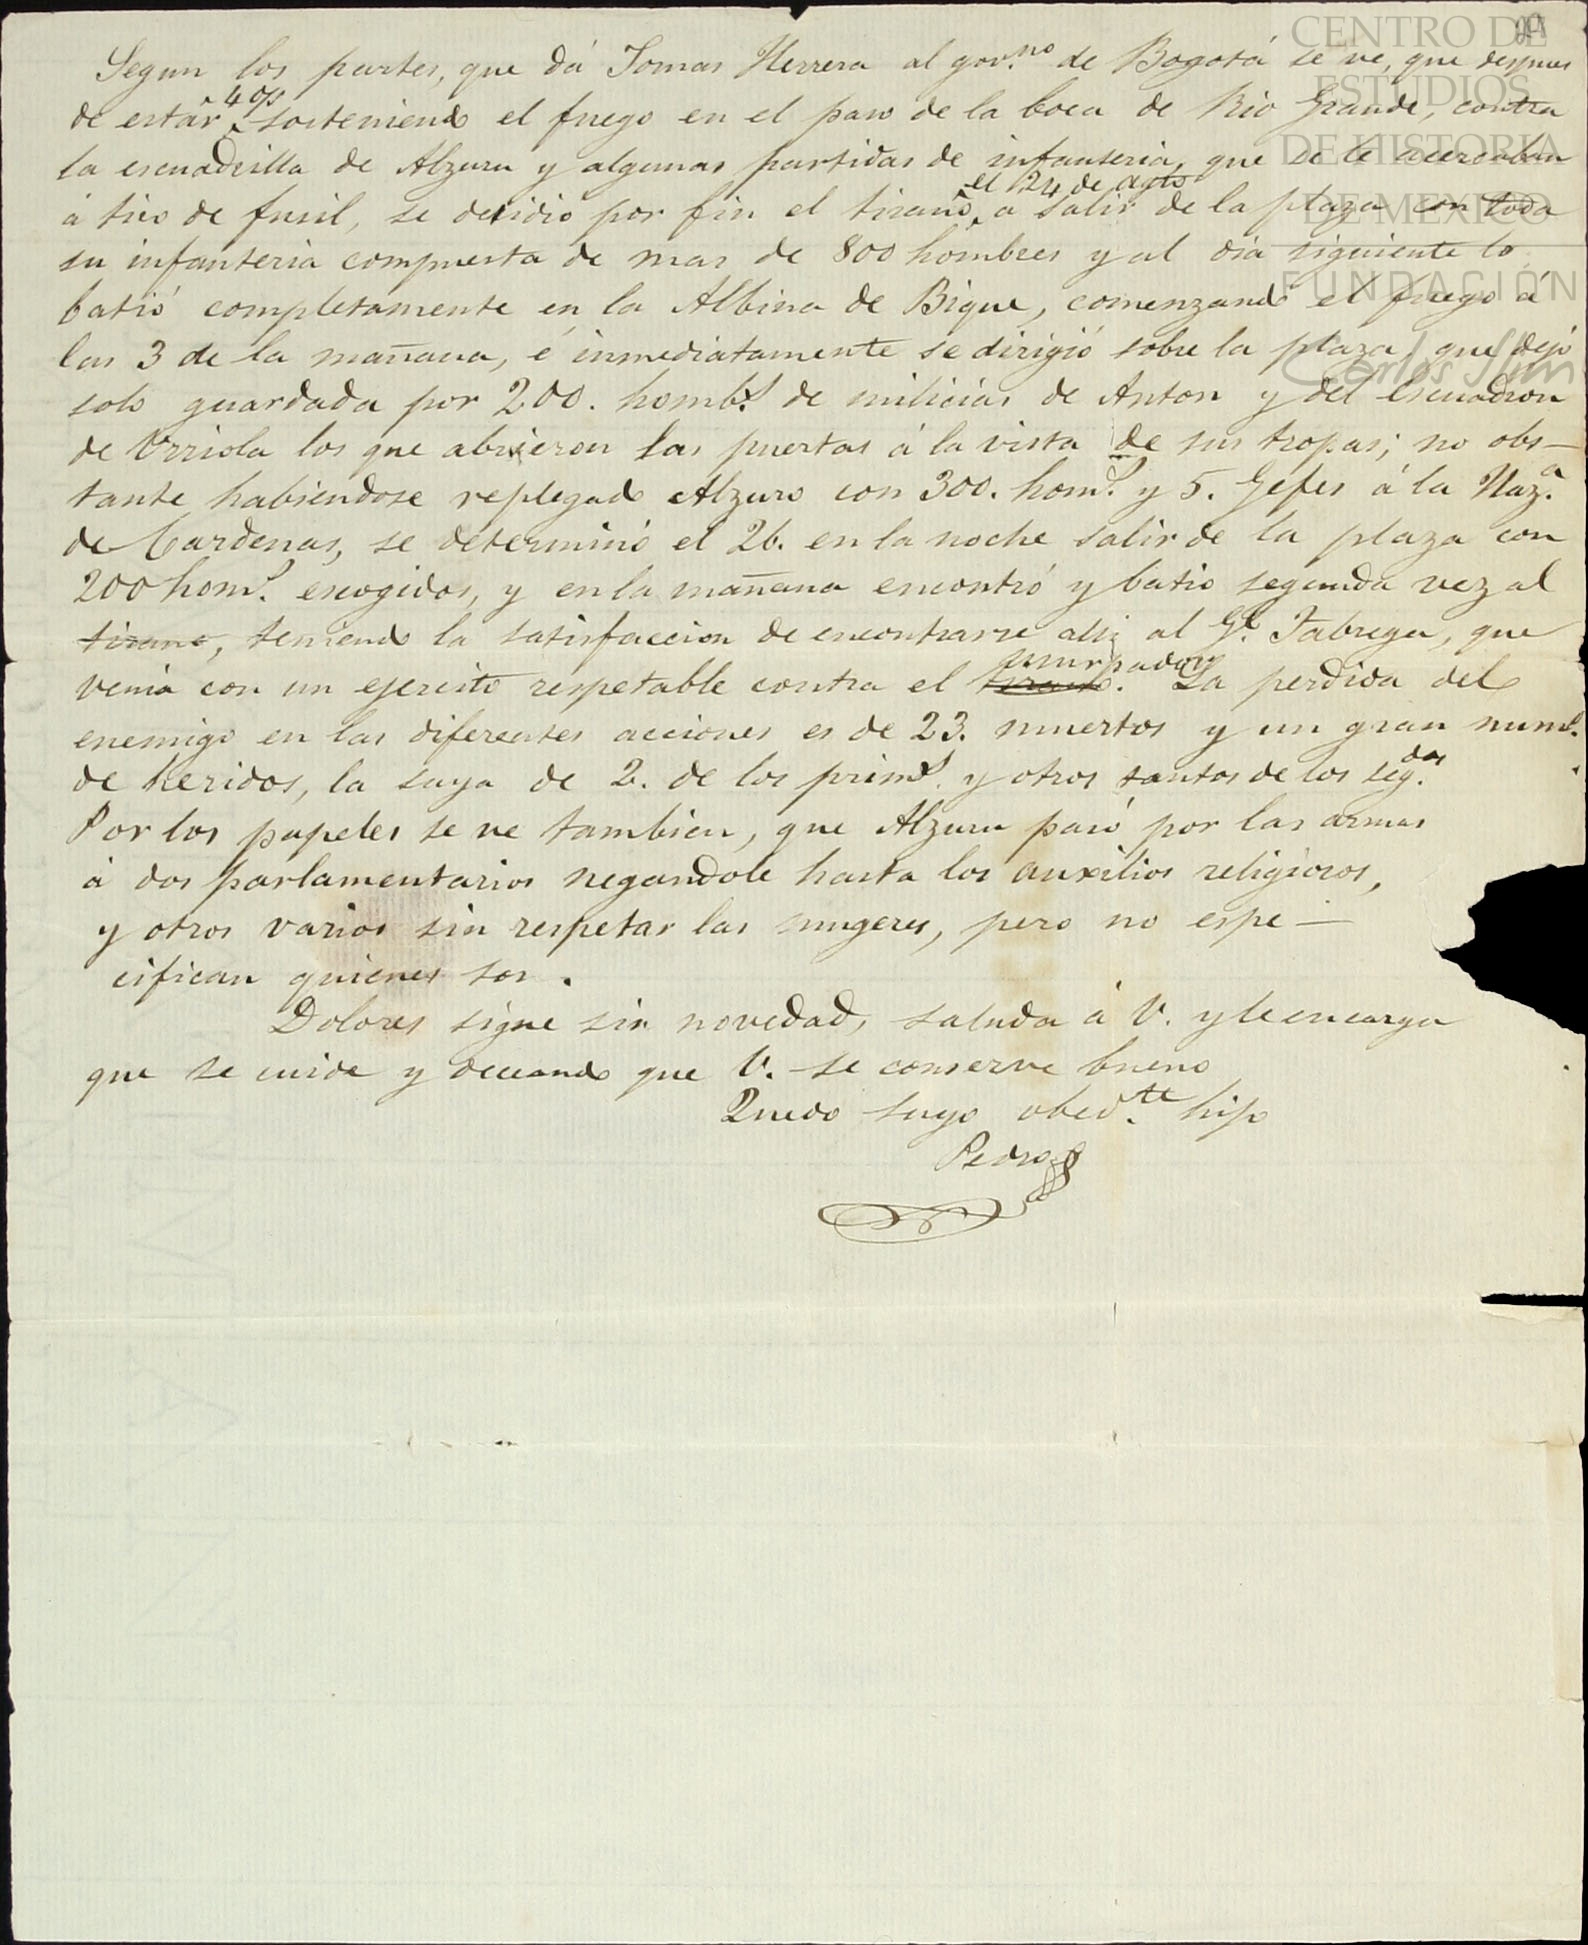 Segun los partes, que dá Tomas Herrera al gov.no de Bogotá se ve, que despues
de estar 4 ds sosteniendo el fuego en el paso de la boca de Rio Grande, contra
la escuadrilla de Alzuru y algunas partidas de infanteria, que se le acercaban
á tiro de fusil, se decidió por fin el tirano el 24 de agto a salir de la plaza con toda
su infanteria compuesta de mas de 800 hombres y al dia siguiente lo
batió completamente en la Albina de Bique, comenzando el fuego á
las 3 de la mañana, é inmediatamente se dirigió sobre la plaza, que dejó
solo guardada por 200. hombs de milicias de Anton y del Escuadron
de Urriola los que abrieron las puertas á la vista de sus tropas; no obs-
tante habiendose replegado Alzuro con 300. homs. y 5. Gefes á la Haz.a
de Cardenas, se determinó el 26. en la noche salir de la plaza con
200 homs. escogidos, y en la mañana encontró y batio segunda vez al
tirano, teniendo la satisfaccion de encontrarse alli al Gl. Fabrega, que
venia con un ejercito respetable contra el tirano usurpador. La perdida del
enemigo en las diferentes acciones es de 23. muertos y un gran num.o
de heridos, la suya de 2. de los prims. y otros tantos de los seg.dos
Por los papeles se ve tambien, que Alzuru pasó por las armas
á dos parlamentarios negandole hasta los auxilios religiosos,
y otros varios sin respetar las mugeres, pero no espe-
cifican quienes son.
Dolores sigue sin novedad, saluda á V. y le encarga
que se cuide y deceando que V. se conserve bueno
Quedo suyo obed.te hijo
Pedro
CENTRO DE
ESTUDIOS
DE HISTORIA
DE MEXICO
FUNDACIÓN
Carlos Slim